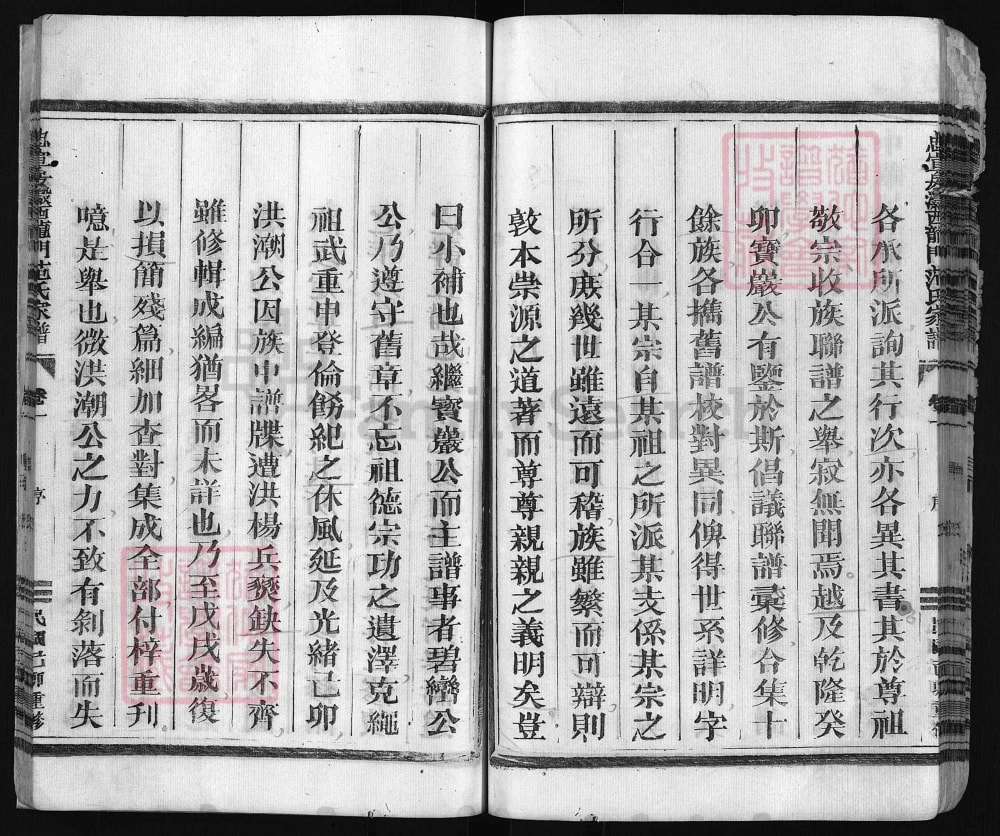 各承所派詢其行次亦各異其書其於尊祖
敬宗收族聯譜之舉寂無聞焉越及乾隆癸
卯寶巖公有鑒於斯倡議聯譜彙修合集十
餘族各攜舊譜校對異同俾得世系詳明字
行合一某宗自某祖之所派某支係某宗之
所分庶幾世雖遠而可稽族雖繁而可辯則
敦本崇源之道著而尊尊親親之義明矣豈
曰小補也哉繼寶巖公而主譜事者碧巒公
公乃遵守舊章不忘祖德宗功之遺澤克繩
祖武重申登倫飭紀之休風延及光緒己卯
洪潮公因族中譜牒遭洪楊兵燹缺失不齊
雖修輯成編猶畧而未詳也乃至戊戌歲復
以損簡殘篇細加查對集成全部付梓重刊
噫是舉也微洪潮公之力不致有剝落而失
龍門范氏家譜
卷一
序
民國己卯重修